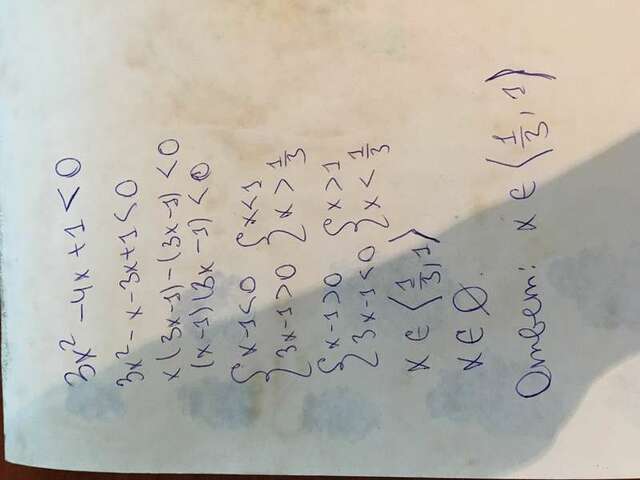 3x² - 4x + 1 < 0
3x² - x - 3x + 1 < 0
x(3x - 1) - (3x - 1) < 0
(x - 1)(3x - 1) < 0
{x - 1 < 0 {x < 1
{3x - 1 > 0 {x > 1/3
{x - 1 > 0 {x > 1
{3x - 1 < 0 {x < 1/3
x ∈ (1/3, 1)
x ∈ ∅.
Ответ: x ∈ (1/3, 1)